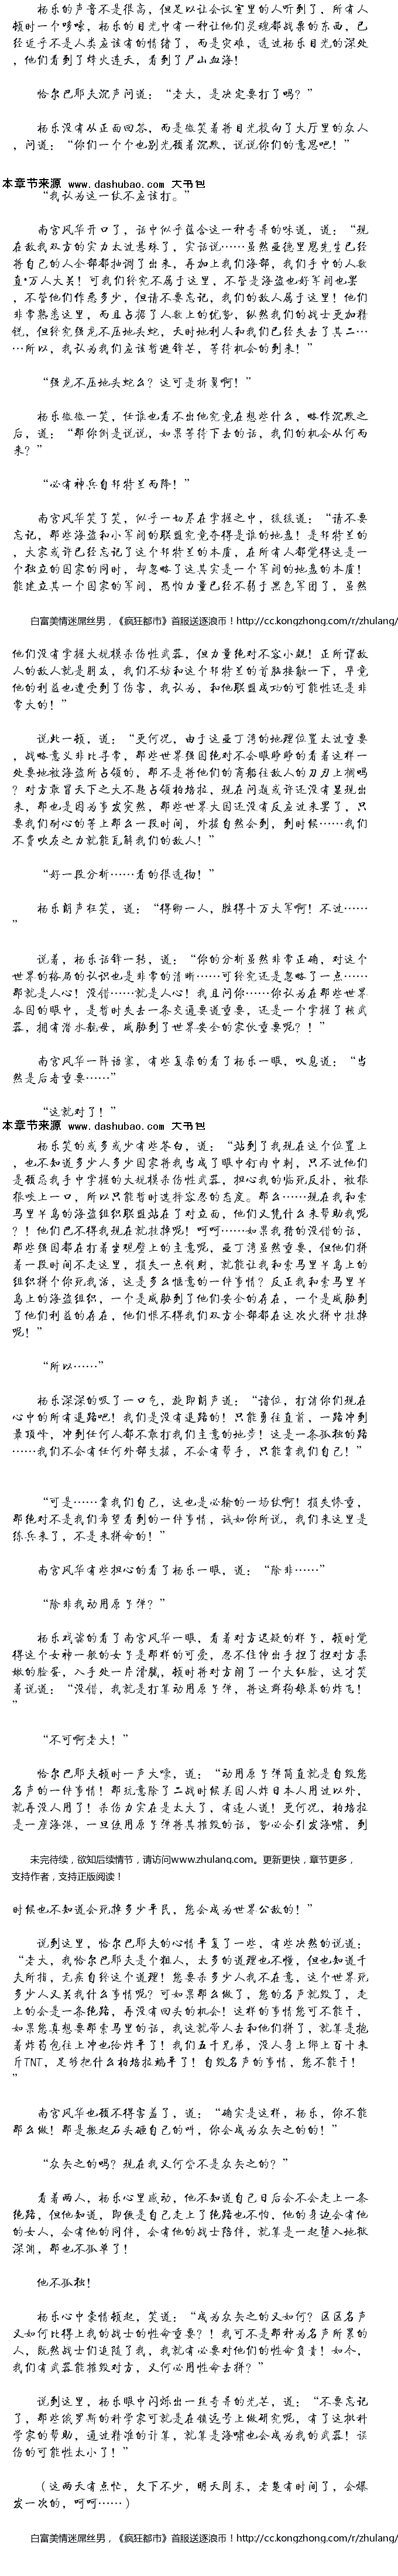 杨乐的声音不是很高，但足以让会议室里的人听到了，所有人
顿时一个哆嗦，杨乐的目光中有一种让他们灵魂都战栗的东西，已
经近乎不是人类应该有的情绪了，而是灾难，透过杨乐目光的深处
，他们看到了烽火连天，看到了尸山血海！
恰尔巴耶夫沉声问道：“老大，是决定要打了吗？”
杨乐没有从正面回答，而是微笑着将目光投向了大厅里的众人
，问道：“你们一个个也别光顾着沉默，说说你们的意思吧！”
本章节来源 www.dashubao.com 大书包
“我认为这一仗不应该打。”
南宫风华开口了，话中似乎蕴含这一种奇异的味道，道：“现
在敌我双方的实力太过悬殊了，实话说……虽然亚德里恩先生已经
将自己的人全部都抽调了出来，再加上我们海部，我们手中的人数
直*万人大关！可我们终究不属于这里，不管是海盗也好军阀也罢
，不管他们作恶多少，但请不要忘记，我们的敌人属于这里！他们
非常熟悉这里，而且占据了人数上的优势，纵然我们的战士更加精
锐，但终究强龙不压地头蛇，天时地利人和我们已经失去了其二…
…所以，我认为我们应该暂避锋芒，等待机会的到来！”
“强龙不压地头蛇么？这可是折翼啊！”
杨乐微微一笑，任谁也看不出他究竟在想些什么，略作沉默之
后，道：“那你倒是说说，如果等待下去的话，我们的机会从何而
来？”
“必有神兵自邦特兰而降！”
南宫风华笑了笑，似乎一切尽在掌握之中，缓缓道：“请不要
忘记，那些海盗和小军阀的联盟究竟夺得是谁的地盘！是邦特兰的
，大家或许已经忘记了这个邦特兰的本质，在所有人都觉得这是一
个独立的国家的同时，却忽略了这其实是一个军阀的地盘的本质！
能建立其一个国家的军阀，恐怕力量已经不弱于黑色军团了，虽然
白富美情迷屌丝男，《疯狂都市》首服送逐浪币！http://cc.kongzhong.com/r/zhulang/
他们没有掌握大规模杀伤性武器，但力量绝对不容小觑！正所谓敌
人的敌人就是朋友，我们不妨和这个邦特兰的首脑接触一下，毕竟
他的利益也遭受到了伤害，我认为，和他联盟成功的可能性还是非
常大的！”
说此一顿，道：“更何况，由于这亚丁湾的地理位置太过重要
，战略意义非比寻常，那些世界强国绝对不会眼睁睁的看着这样一
处要地被海盗所占领的，那不是将他们的商船往敌人的刀刃上搁吗
？对方敢冒天下之大不韪占领柏培拉，现在问题或许还没有呈现出
来，那也是因为事发突然，那些世界大国还没有反应过来罢了，只
要我们耐心的等上那么一段时间，外援自然会到，到时候……我们
不费吹灰之力就能瓦解我们的敌人！”
“好一段分析……看的很透彻！”
杨乐朗声狂笑，道：“得卿一人，胜得十万大军啊！不过……
”
说着，杨乐话锋一转，道：“你的分析虽然非常正确，对这个
世界的格局的认识也是非常的清晰……可终究还是忽略了一点……
那就是人心！没错……就是人心！我且问你……你认为在那些世界
各国的眼中，是暂时失去一条交通要道重要，还是一个掌握了核武
器，拥有潜水航母，威胁到了世界安全的家伙重要呢？！”
南宫风华一阵语塞，有些复杂的看了杨乐一眼，叹息道：“当
然是后者重要……”
“这就对了！”
本章节来源 www.dashubao.com 大书包
杨乐笑的或多或少有些苍白，道：“站到了我现在这个位置上
，也不知道多少人多少国家将我当成了眼中钉肉中刺，只不过他们
是顾忌我手中掌握的大规模杀伤性武器，担心我的临死反扑，被狠
狠咬上一口，所以只能暂时选择容忍的态度。那么……现在我和索
马里半岛的海盗组织联盟站在了对立面，他们又凭什么来帮助我呢
？！他们巴不得我现在就挂掉呢！呵呵……如果我猜的没错的话，
那些强国都在打着坐观壁上的主意呢，亚丁湾虽然重要，但他们拼
着一段时间不走这里，损失一点钱财，就能让我和索马里半岛上的
组织拼个你死我活，这是多么惬意的一件事情？反正我和索马里半
岛上的海盗组织，一个是威胁到了他们安全的存在，一个是威胁到
了他们利益的存在，他们恨不得我们双方全部都在这次火拼中挂掉
呢！”
“所以……”
杨乐深深的吸了一口气，旋即朗声道：“诸位，打消你们现在
心中的所有退路吧！我们是没有退路的！只能勇往直前，一路冲到
最顶峰，冲到任何人都不敢打我们主意的地步！这是一条孤独的路
……我们不会有任何外部支援，不会有帮手，只能靠我们自己！”
“可是……靠我们自己，这也是必输的一场仗啊！损失惨重，
那绝对不是我们希望看到的一件事情，诚如你所说，我们来这里是
练兵来了，不是来拼命的！”
南宫风华有些担心的看了杨乐一眼，道：“除非……”
“除非我动用原子弹？”
杨乐戏谑的看了南宫风华一眼，看着对方迟疑的样子，顿时觉
得这个女神一般的女子是那样的可爱，忍不住伸出手捏了捏对方柔
嫩的脸蛋，入手处一片滑腻，顿时将对方闹了一个大红脸，这才笑
着说道：“没错，我就是打算动用原子弹，将这群狗娘养的炸飞！
”
“不可啊老大！”
恰尔巴耶夫顿时一声大嚎，道：“动用原子弹简直就是自毁您
名声的一件事情！那玩意除了二战时候美国人炸日本人用过以外，
就再没人用了！杀伤力实在是太大了，有违人道！更何况，柏培拉
是一座海港，一旦使用原子弹将其摧毁的话，势必会引发海啸，到
未完待续，欲知后续情节，请访问www.zhulang.com。更新更快，章节更多，
支持作者，支持正版阅读！
时候也不知道会死掉多少平民，您会成为世界公敌的！”
说到这里，恰尔巴耶夫的心情平复了一些，有些决然的说道：
“老大，我恰尔巴耶夫是个粗人，太多的道理也不懂，但也知道千
夫所指，无疾自终这个道理！您要杀多少人我不在意，这个世界死
多少人又关我什么事情呢？可如果那么做了，您的名声就毁了，走
上的会是一条绝路，再没有回头的机会！这样的事情您可不能干，
如果您真想要那索马里的话，我这就带人去和他们拼了，就算是抱
着炸药包往上冲也给炸平了！我们五千兄弟，没人身上绑上百十来
斤TNT，足够把什么柏培拉端平了！自毁名声的事情，您不能干！
”
南宫风华也顾不得害羞了，道：“确实是这样，杨乐，你不能
那么做！那是搬起石头砸自己的脚，你会成为众矢之的的！”
“众矢之的吗？现在我又何尝不是众矢之的？”
看着两人，杨乐心里感动，他不知道自己日后会不会走上一条
绝路，但他知道，即便是自己走上了绝路也不怕，他的身边会有他
的女人，会有他的同伴，会有他的战士陪伴，就算是一起堕入地狱
深渊，那也不孤单了！
他不孤独！
杨乐心中豪情顿起，笑道：“成为众矢之的又如何？区区名声
又如何比得上我的战士的性命重要？！我可不是那种为名声所累的
人，既然战士们追随了我，我就有必要对他们的性命负责！如今，
我们有武器能摧毁对方，又何必用性命去拼？”
说到这里，杨乐眼中闪烁出一丝奇异的光芒，道：“不要忘记
了，那些俄罗斯的科学家可就是在镇远号上做研究呢，有了这批科
学家的帮助，通过精准的计算，就算是海啸也会成为我的武器！误
伤的可能性太小了！”
（这两天有点忙，欠下不少，明天周末，老楚有时间了，会爆
发一次的，呵呵……）
白富美情迷屌丝男，《疯狂都市》首服送逐浪币！http://cc.kongzhong.com/r/zhulang/